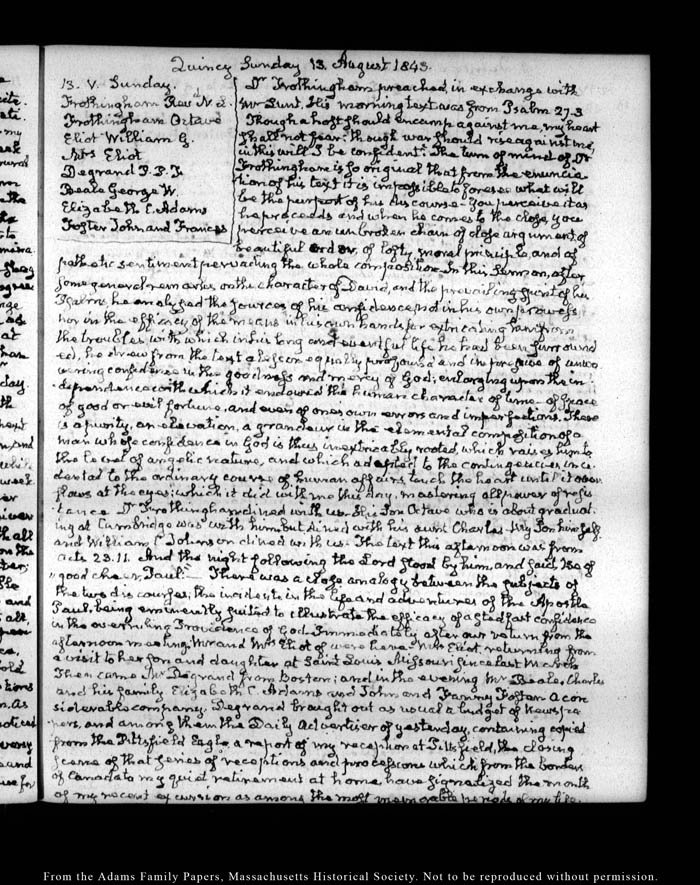 Quincy Sunday 13. August 1843.
13. V. Sunday.
Frothingham Rev N. L.
Frothingham Octave
Eliot William G.
Mrs Eliot
Degrand P. P. F.
Beale George W.
Elizabeth C. Adams
Foster John and Frances
Dr Frothingham preached, in exchange with
Mr Lunt. His morning text was from Psalm 27.3
Though a host should encamp against me, my heart
shall not fear: though war should rise against me,
in this will I be confident. The turn of mind of Dr
Frothingham is so original that from the enuncia-
tion of his text it is impossible to foresee what will
be the purport of his discourse. You perceive it as
he proceeds and when he comes to the close, you
perceive an unbroken chain of close argument, of
beautiful order, of lofty moral principle, and of
pathetic sentiment pervading the whole composition. In this Sermon, after
some general remarks on the character of David, and the prevailing spirit of his
Psalms, he analyzed the sources of his confidence, not in his own prowess
nor in the efficacy of the means in his own hands for extricating him from
the troubles with which in his long and eventful life he had been surround-
ed, he drew from the text a lesson equally profound and impressive of unwa-
vering confidence in the goodness and mercy of God; enlarging upon the in-
dependence with which it endowed the human character of time of place
of good or evil fortune, and even of one's own errors and imperfections. There
is a purity, an elevation, a grandeur in the elemental composition of a
man whose confidence in God is thus inextricably rooted, which raises him to
the level of angelic nature, and which adapted to the contingencies inci-
dental to the ordinary course of human affairs touch the heart until it over-
flows at the eyes; which it did with me this day, mastering all power of resis-
tance. Dr Frothingham dined with us. His Son Octave who is about graduat-
ing at Cambridge was with him but dined with his aunt Charles. My Son himself
and William C. Johnson dined with us. The text this afternoon was from
Acts 23.11. And the night following the Lord stood by him, and said "Be of
"good cheer, Paul." — There was a close analogy between the subjects of
the two discourses; the incidents in the life and adventures of the Apostle
Paul, being eminently suited to illustrate the efficacy of a steadfast confidence
in the overruling Providence of God. Immediately after our return from the
afternoon meeting, Mr and Mrs Eliot were here. Mrs Eliot returning from
a visit to her son and daughter at Saint Louis Missouri since last March
Then came Mr Degrand from Boston; and in the evening Mr Beale, Charles
and his family, Elizabeth C. Adams and John and Fanny Foster. A con-
siderable company. Degrand brought out as usual a budget of Newspa-
pers, and among them the Daily Advertiser of yesterday, containing copied
from the Pittsfield Eagle, a report of my reception at Pittsfield, the closing
scene of that series of receptions and processions which from the borders
of Canada to my quiet retirement at home, have signalized the month
of my recent excursion as among the most memorable periods of my life.
From the Adams Family Papers, Massachusetts Historical Society. Not to be reproduced without permission.